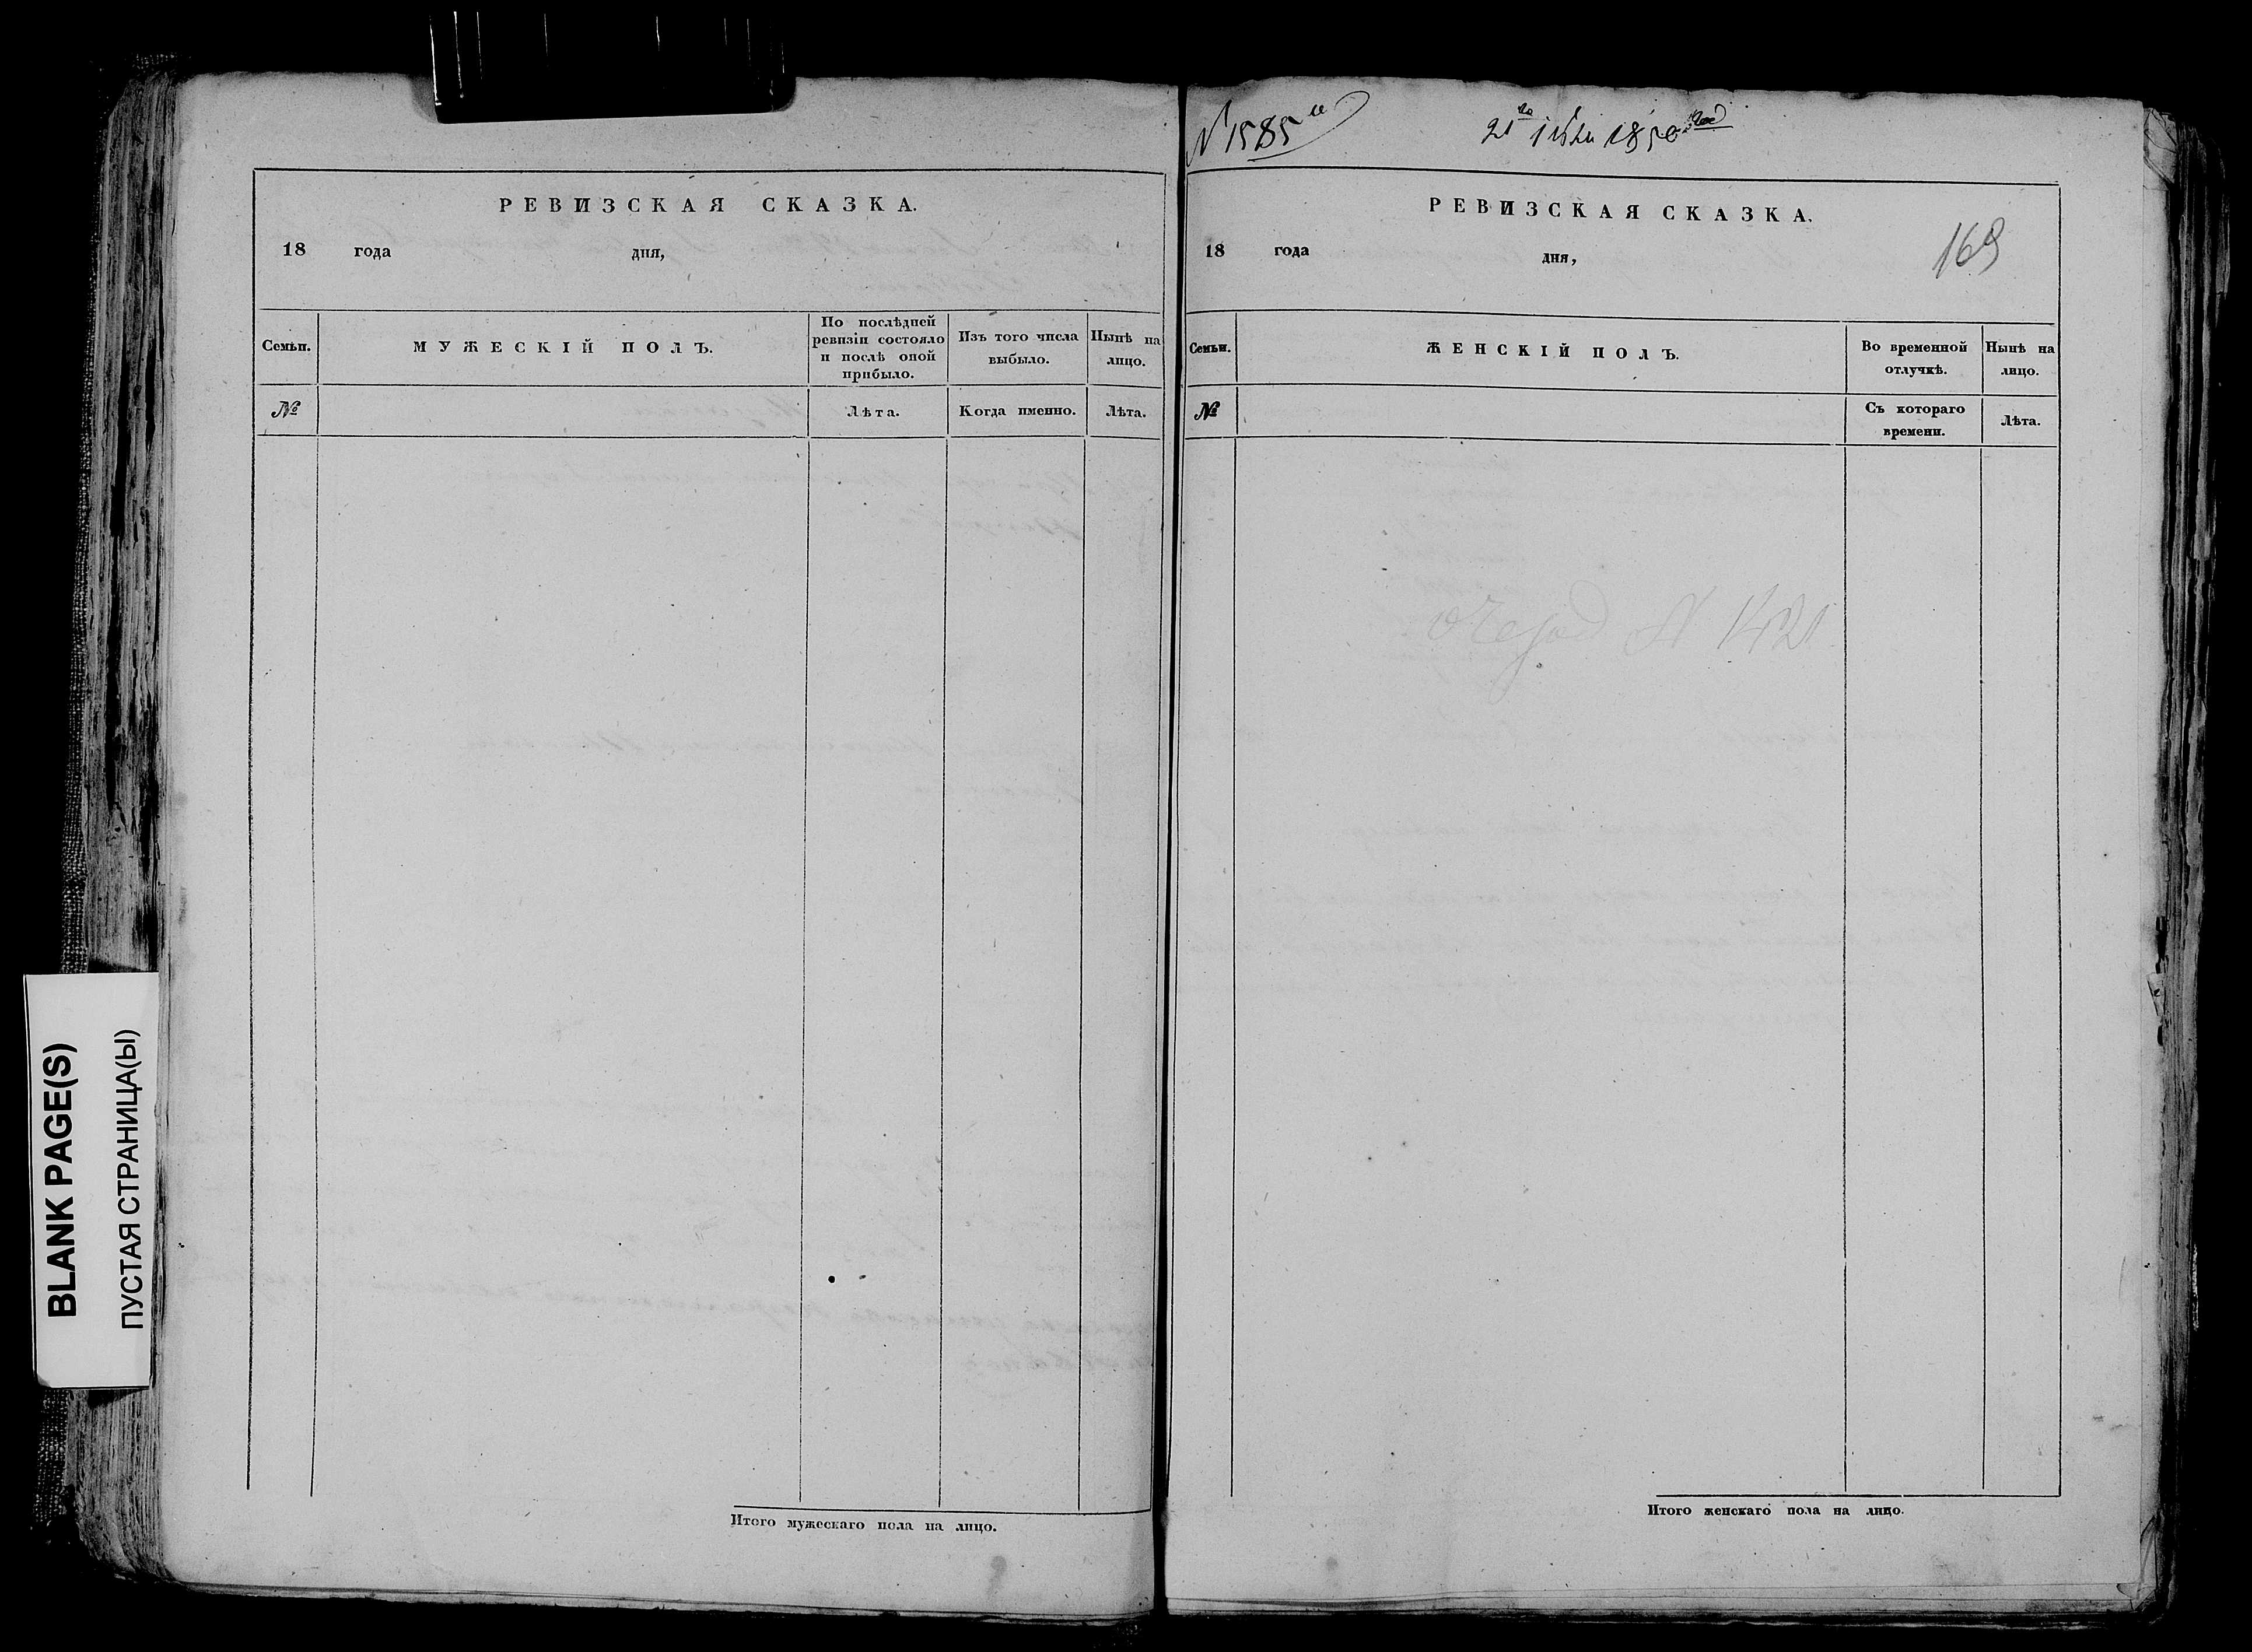 BLANK PAGE(S)
ПУСТАЯ СТРАНИЦА(Ы)
РЕВИЗСКАЯ СКАЗКА.
18 года дня,
Семьи.
МУЖЕСКІЙ ПОЛЪ.
По послѣдней
ревизіи состояло
и послѣ оной
прибыло.
Изъ того числа
выбыло.
Нынѣ на
лицо.
№
Лѣта.
Когда именно.
Лѣта.
Итого мужескаго пола на лицо.
№ 1585
21 1850
РЕВИЗСКАЯ СКАЗКА.
169
18 года дня,
Семьи.
ЖЕНСКІЙ ПОЛЪ.
Во временной
отлучкѣ.
Нынѣ на
лицо.
№
Съ котораго
времени.
Лѣта.
№ 1421
Итого женскаго пола на лицо.